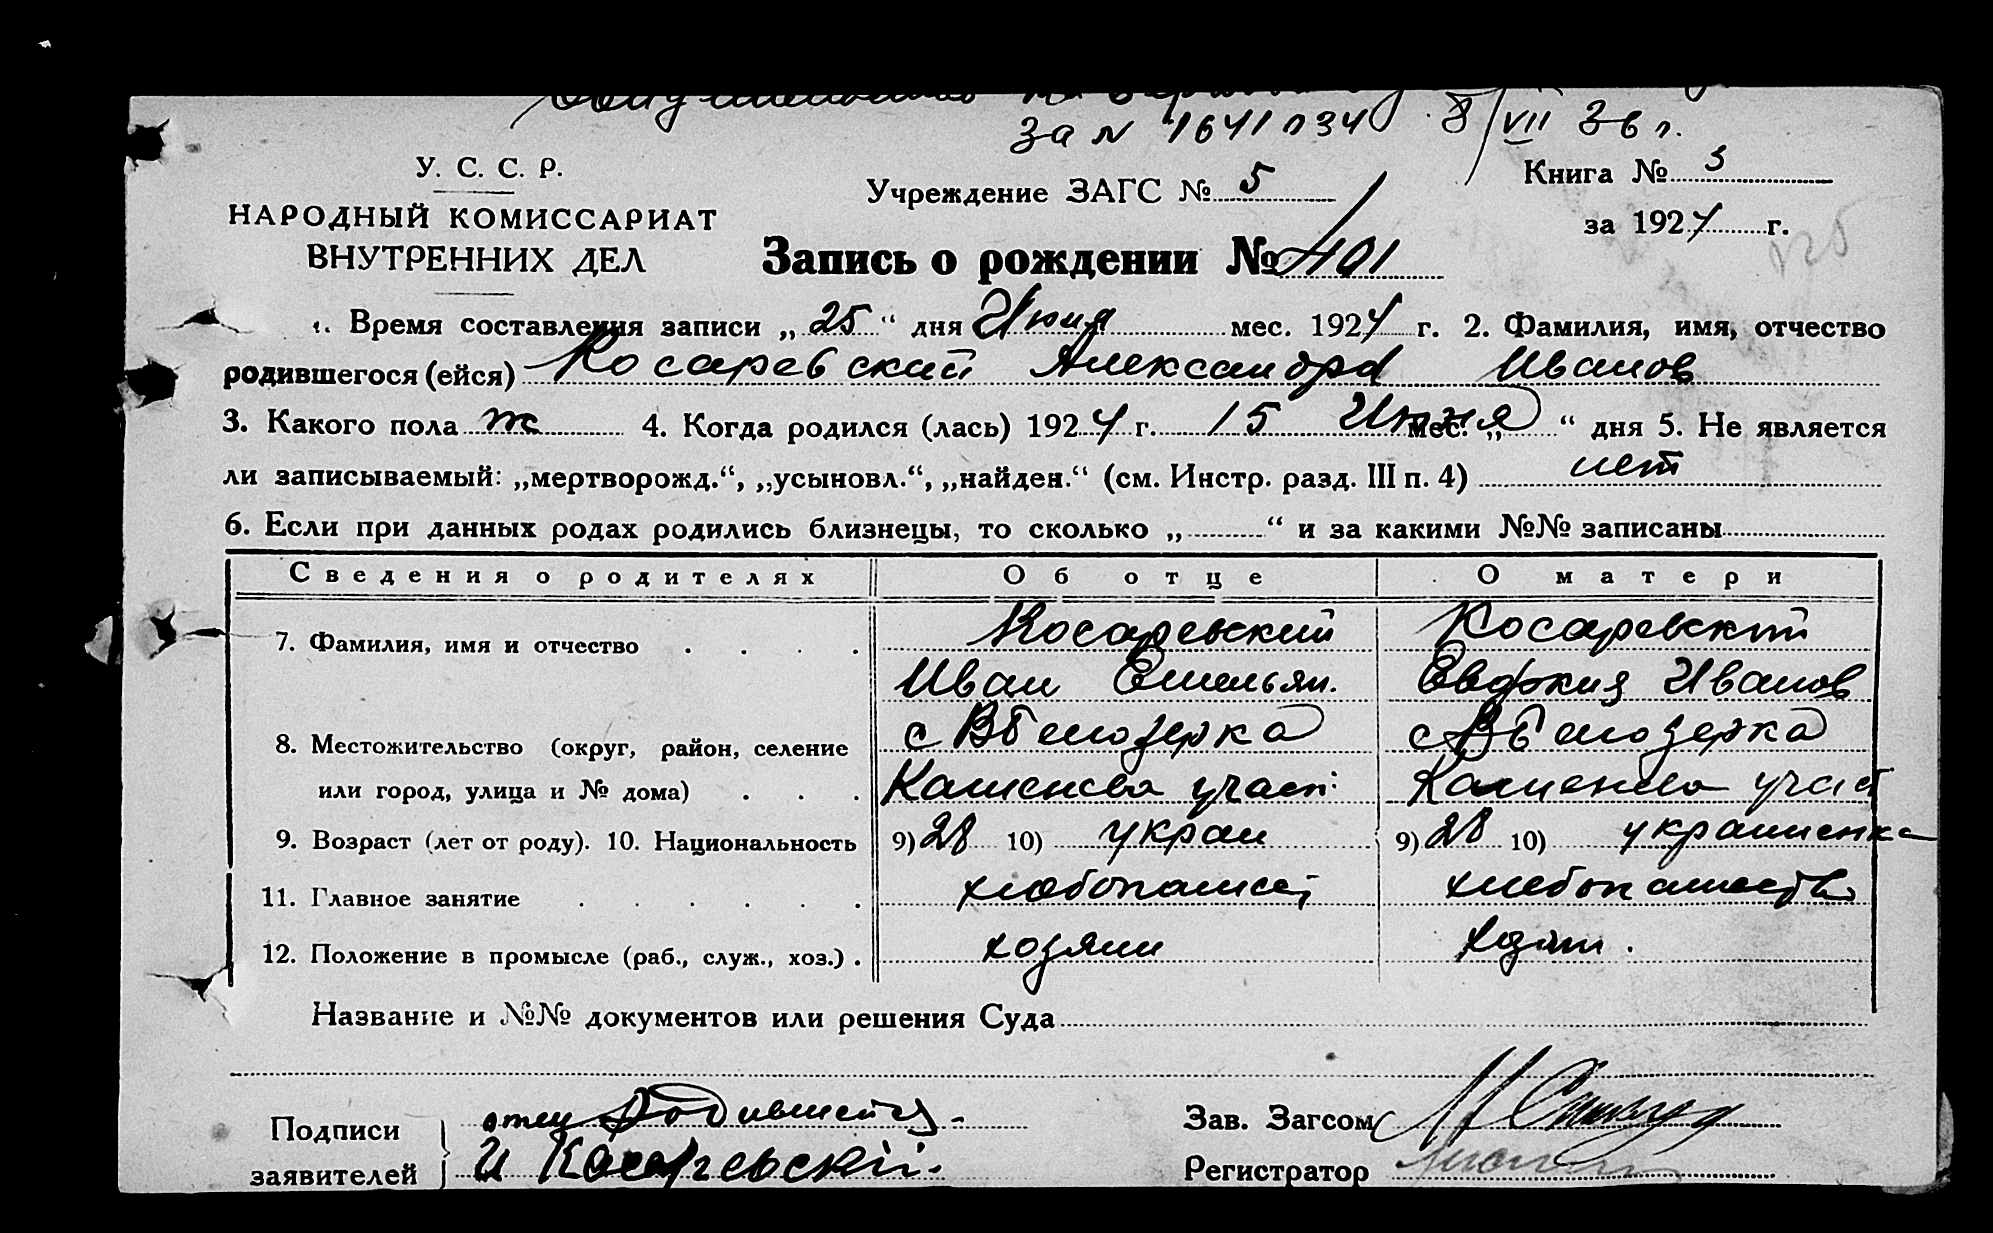 за N 1641 п 34 8/VII 36 г.
У. С. С. Р.
НАРОДНЫЙ КОМИССАРИАТ
ВНУТРЕННИХ ДЕЛ
Учреждение ЗАГС № 5
Книга № 3
за 1924 г.
Запись о рождении № 401
1. Время составления записи „ 25 “ дня Июня мес. 1924 г. 2. Фамилия, имя, отчество
родившегося (ейся) Косаревский Александра Иванов
3. Какого пола ж 4. Когда родился (лась) 1924 г. 15 Июня мес. „ “ дня 5. Не является
ли записываемый: „мертворожд.“, „усыновл.“, „найден.“ (см. Инстр. разд. III п. 4) нет
6. Если при данных родах родились близнецы, то сколько „ “ и за какими №№ записаны
Сведения о родителях Об отце О матери
7. Фамилия, имя и отчество . . . . Косаревский Косаревский
Иван Емельян. Евдокия Иванов
с Вбелозерка с Вбелозерка
8. Местожительство (округ, район, селение
или город, улица и № дома) . . . Каменсво участ: Каменсво участ
9. Возраст (лет от роду). 10. Национальность 9) 28 10) украин 9) 28 10) украиенка
11. Главное занятие . . . . . . хлебопашес, хлебопашеств
12. Положение в промысле (раб., служ., хоз.) . хозяин хозяин .
Название и №№ документов или решения Суда
Подписи
заявителей
отец
И Косаревский.
Зав. Загсом
Регистратор